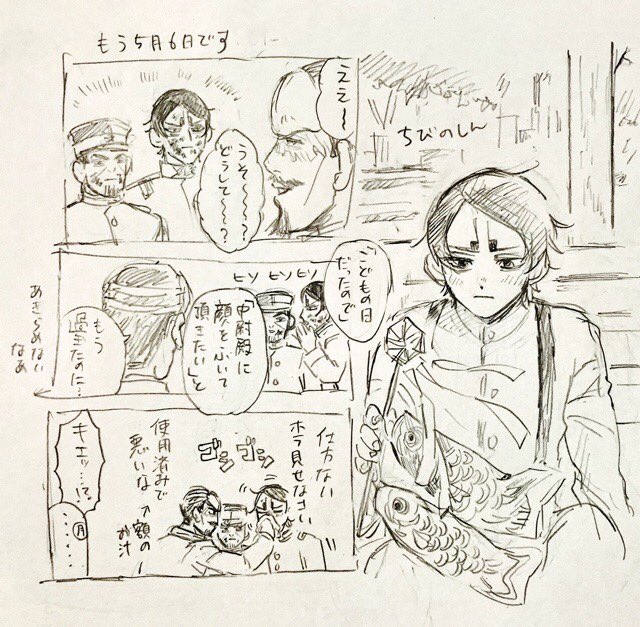 もう5月6日です
ちびのしん
ええ〜
うそ〜〜〜?
どうして〜〜?
「こどもの日
だったので
ヒソ ヒソヒソ
中尉殿に
顔をふいて
頂きたい」と
もう
過ぎたのに…
あきらめない
なあ
仕方ない
ホラ見せなさい
ゴシゴシ
使用済みで
悪いな
額の
お汁
キエッ…!?
月……